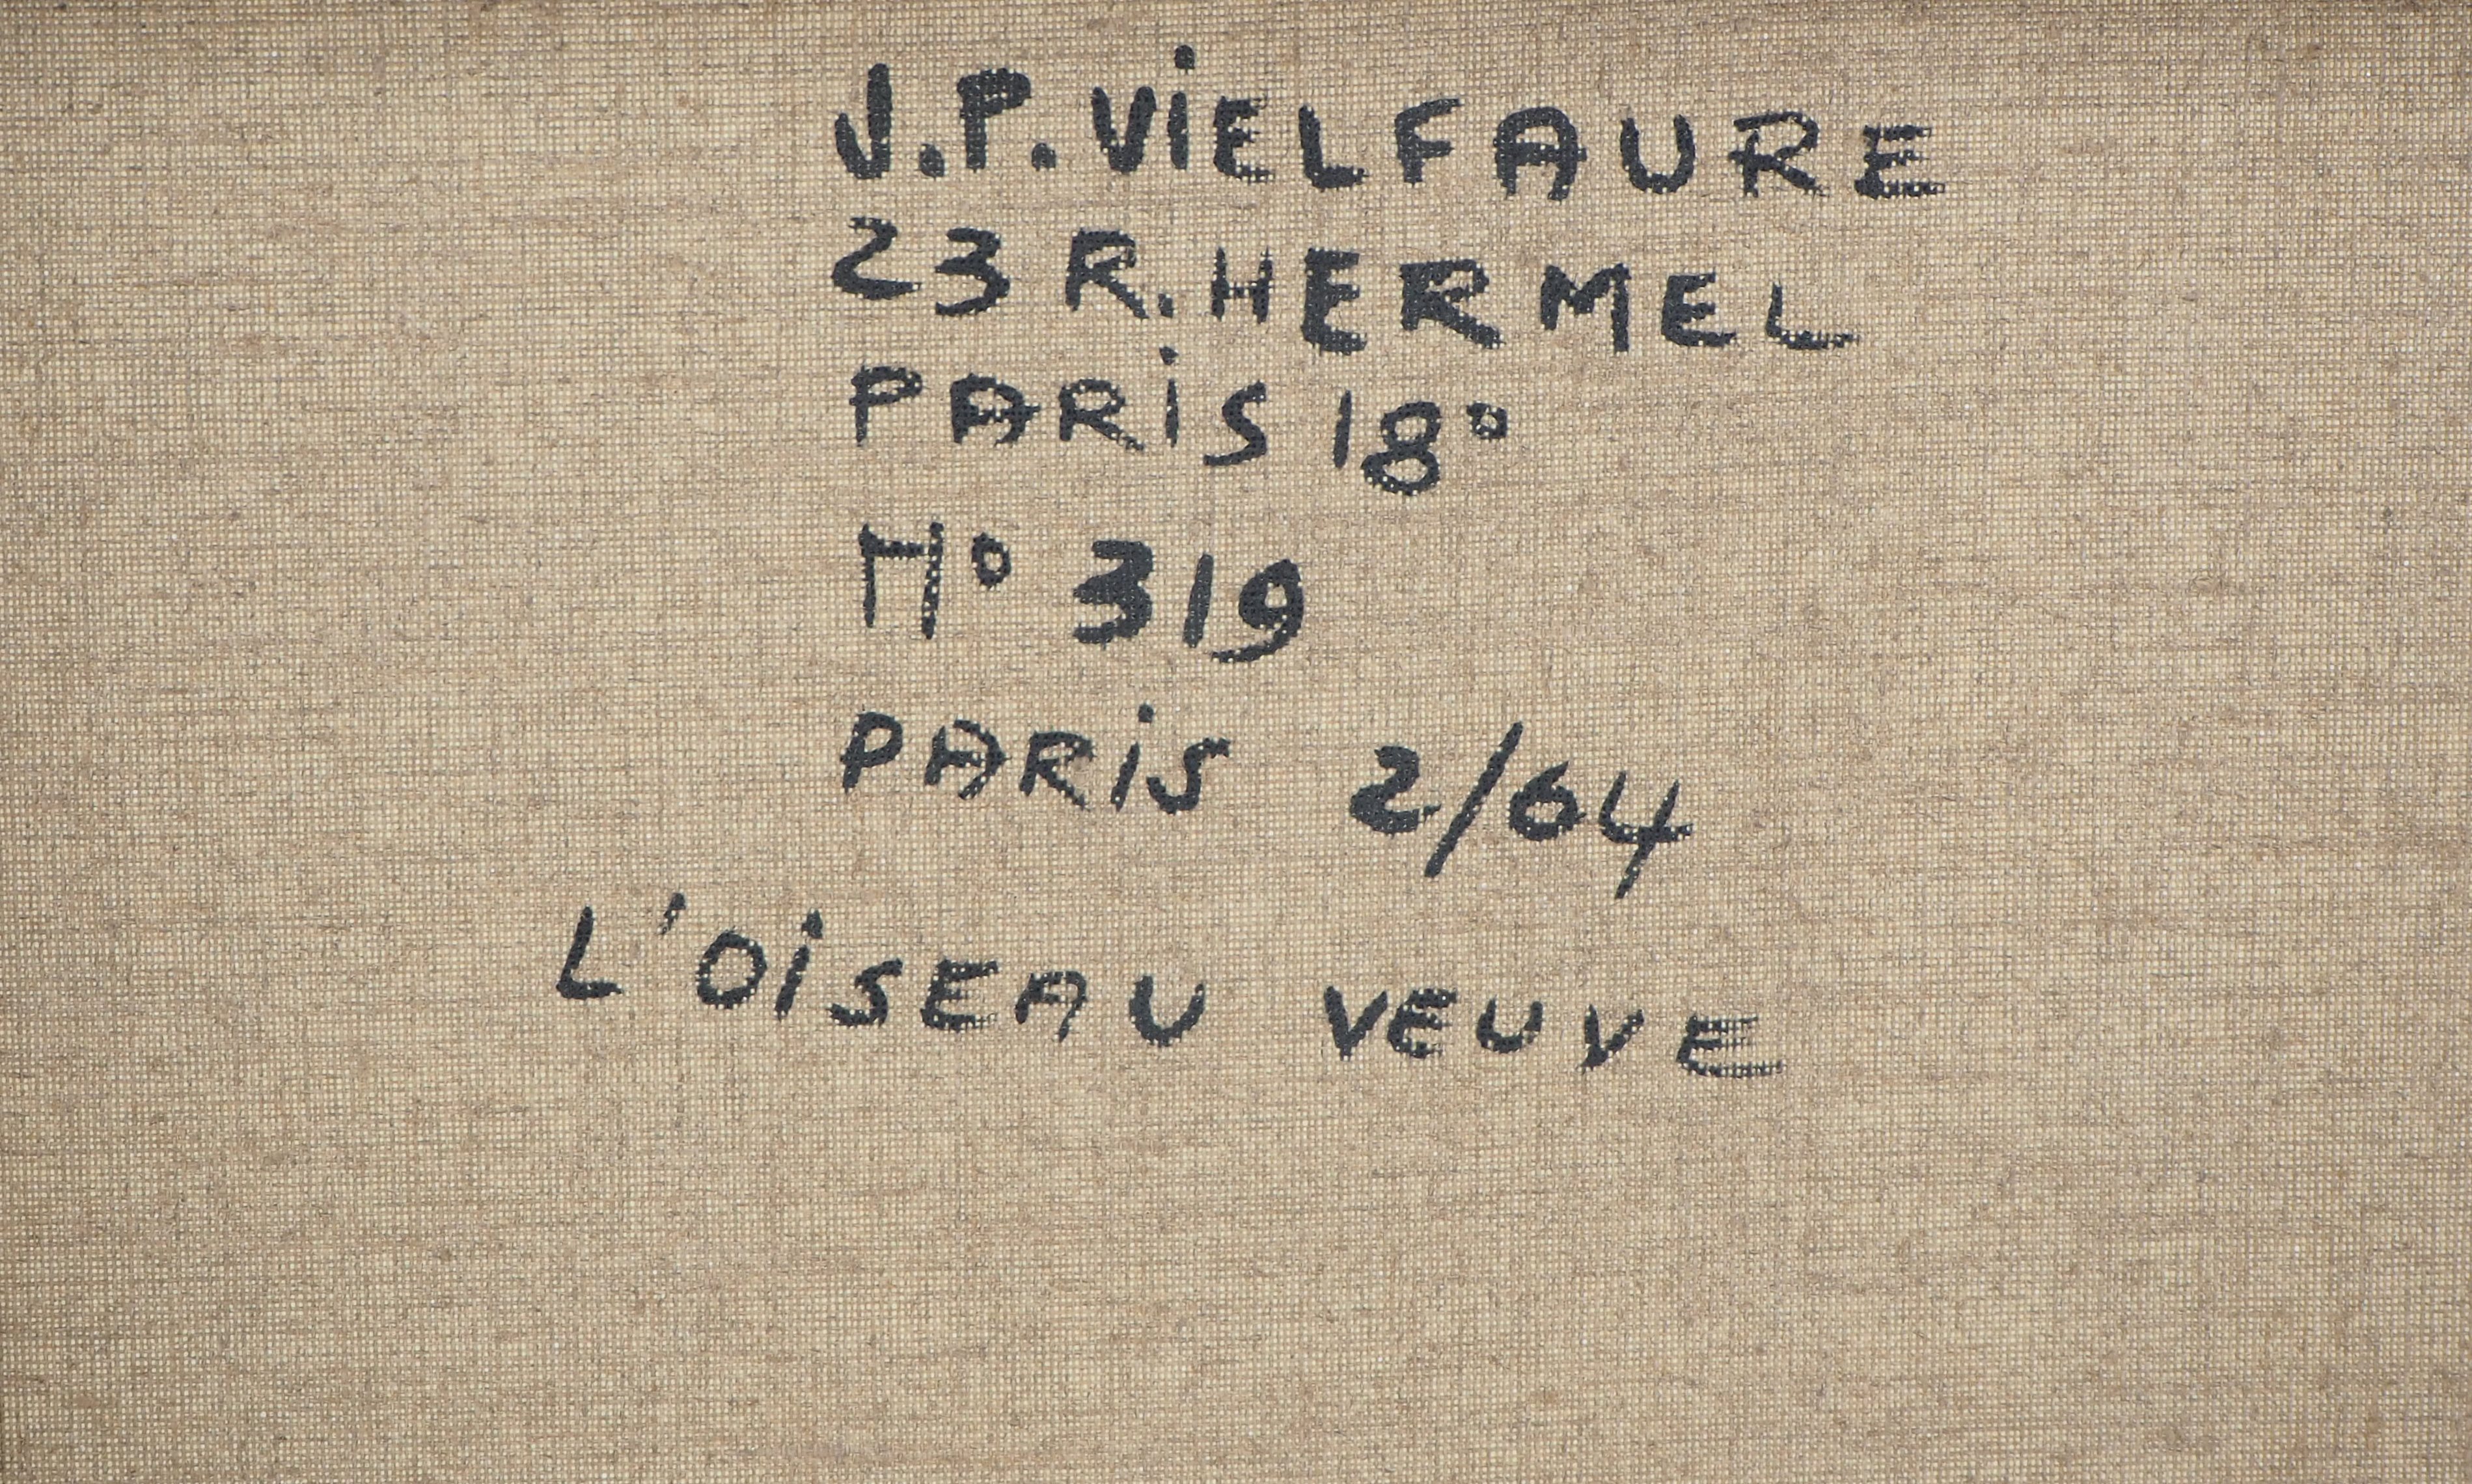 J.P. ViELFAURE
23 R. HERMEL
PARiS 18°
N° 319
PARiS 2/64
L'OiSEAU VEUVE